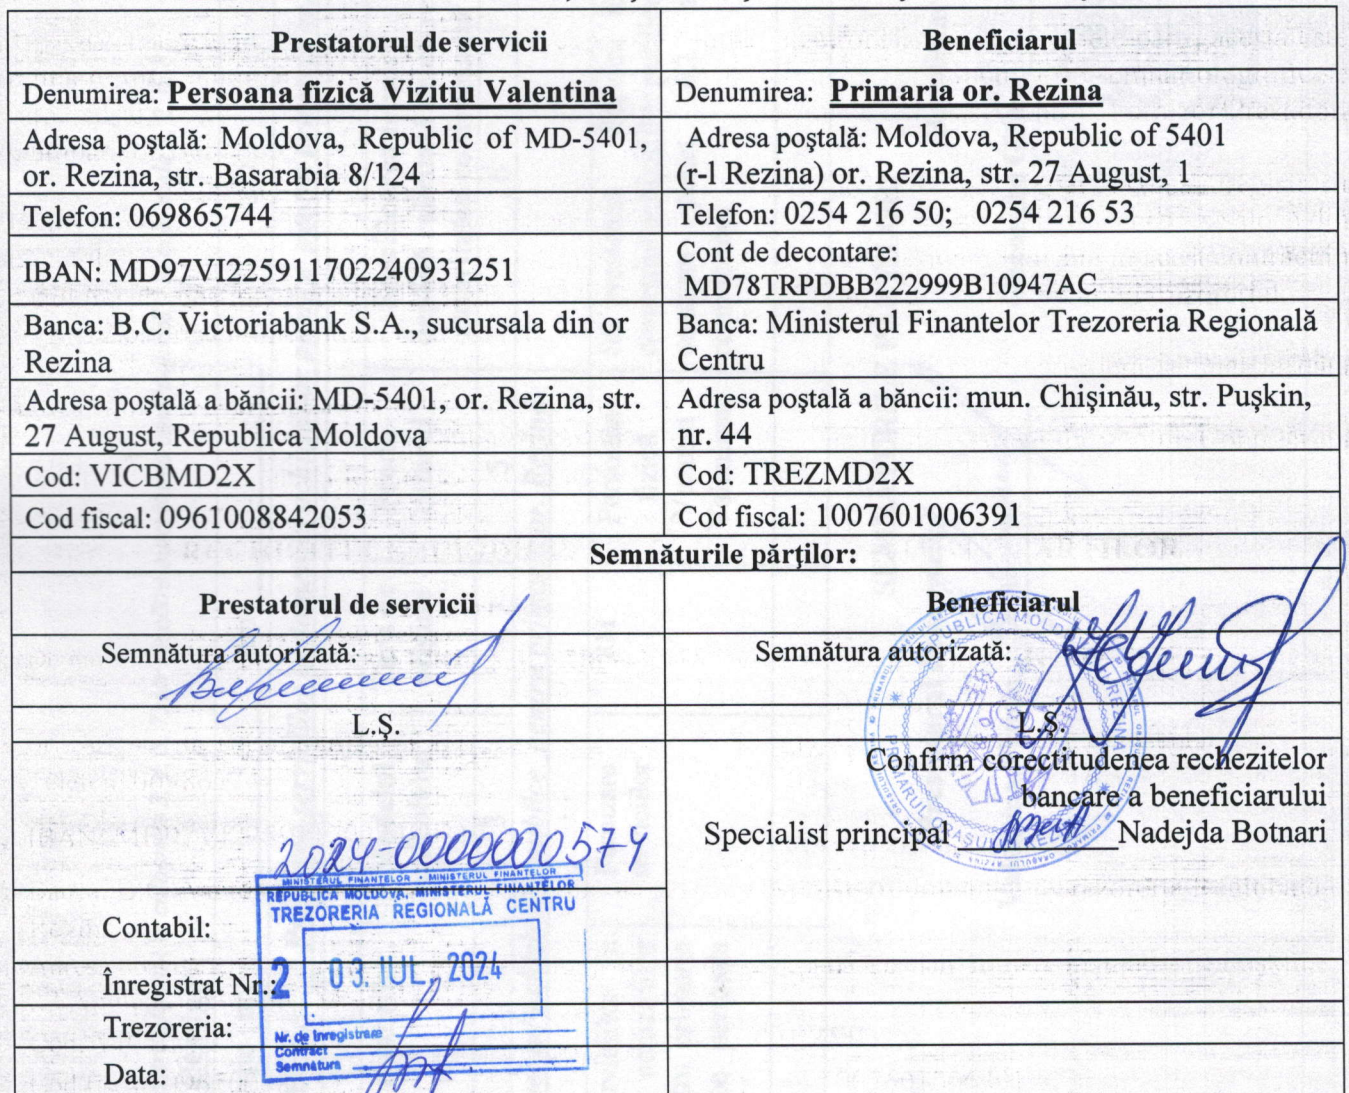 Prestatorul de servicii
Beneficiarul
Denumirea: Persoana fizică Vizitiu Valentina
Denumirea: Primaria or. Rezina
Adresa poştală: Moldova, Republic of MD-5401,
or. Rezina, str. Basarabia 8/124
Adresa poştală: Moldova, Republic of 5401
(r-l Rezina) or. Rezina, str. 27 August, 1
Telefon: 069865744
Telefon: 0254 216 50; 0254 216 53
IBAN: MD97VI225911702240931251
Cont de decontare:
MD78TRPDBB222999B10947AC
Banca: B.C. Victoriabank S.A., sucursala din or
Rezina
Banca: Ministerul Finantelor Trezoreria Regională
Centru
Adresa poştală a băncii: MD-5401, or. Rezina, str.
27 August, Republica Moldova
Adresa poştală a băncii: mun. Chișinău, str. Pușkin,
nr. 44
Cod: VICBMD2X
Cod: TREZMD2X
Cod fiscal: 0961008842053
Cod fiscal: 1007601006391
Semnăturile părţilor:
Prestatorul de servicii
Beneficiarul
Semnătura autorizată:
Semnătura autorizată:
L.Ş.
L.Ş.
REPUBLICA MOLDOVA
REZINA
PRIMARUL ORAȘULUI REZINA
Confirm corectitudenea rechezitelor
bancare a beneficiarului
Specialist principal Nadejda Botnari
2024-0000000574
MINISTERUL FINANTELOR • MINISTERUL FINANTELOR
REPUBLICA MOLDOVA, MINISTERUL FINANŢELOR
TREZORERIA REGIONALĂ CENTRU
Contabil:
2 03. IUL. 2024
Înregistrat Nr.:
Trezoreria:
Nr. de înregistrare
Contract
Semnătura
Data: